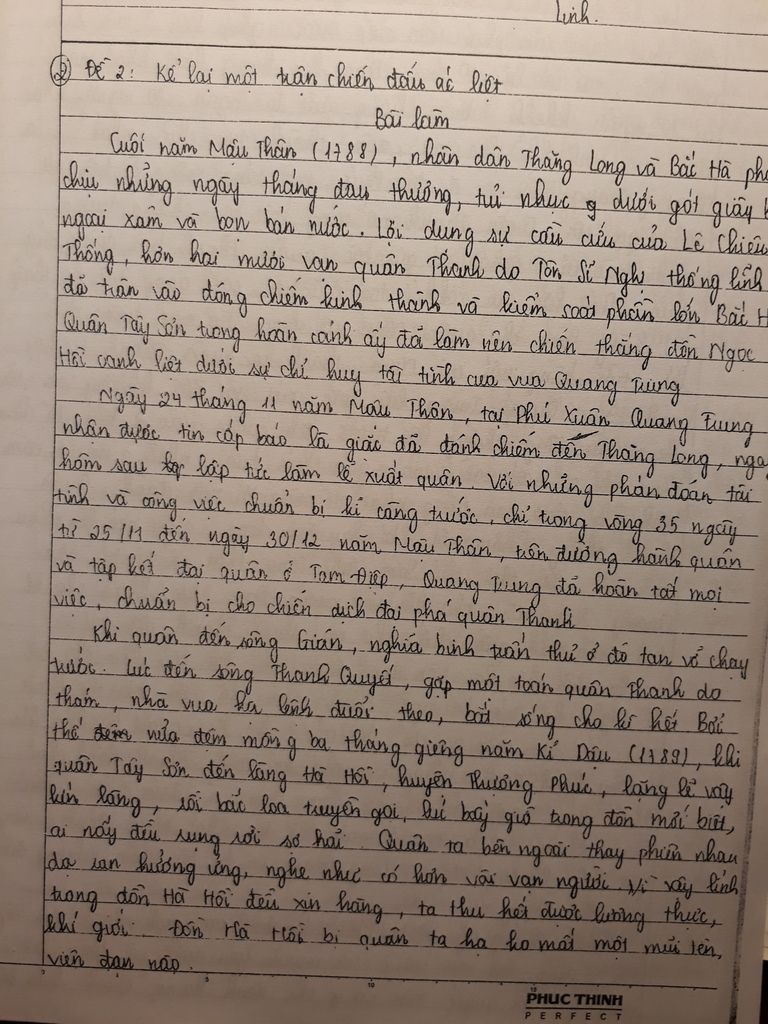 Linh.
② Đề 2: Kể lại một trận chiến đấu ác liệt
Bài làm
Cuối năm Mậu Thân (1788), nhân dân Thăng Long và Bắc Hà phả
chịu những ngày tháng đau thương, tủi nhục dưới gót giày
ngoại xâm và bọn bán nước. Lợi dụng sự cầu cứu của Lê Chiêu
Thống, hơn hai mươi vạn quân Thanh do Tôn Sĩ Nghị thống lĩnh
đã tràn vào đóng chiếm kinh thành và kiểm soát phần lớn Bắc H
Quân Tây Sơn trong hoàn cảnh ấy đã làm nên chiến thắng đồn Ngọc
Hồi oanh liệt dưới sự chỉ huy tài tình của vua Quang Trung
Ngày 24 tháng 11 năm Mậu Thân, tại Phú Xuân Quang Trung
nhận được tin cấp báo là giặc đã đánh chiếm đến Thăng Long, nga
hôm sau lập tức làm lễ xuất quân. Với những phán đoán tài
tình và công việc chuẩn bị kĩ càng trước, chỉ trong vòng 35 ngày
từ 25/11 đến ngày 30/12 năm Mậu Thân, trên đường hành quân
và tập kết đại quân ở Tam Điệp, Quang Trung đã hoàn tất mọi
việc, chuẩn bị cho chiến dịch đại phá quân Thanh
Khi quân đến sông Gián, nghĩa binh trấn thủ ở đó tan vỡ chạy
trước. Lúc đến sông Thanh Quyết, gặp một toán quân Thanh do
thám, nhà vua ra lệnh đuổi theo, bắt sống cho kì hết Bởi
thế nửa đêm mồng ba tháng giêng năm Kỉ Dậu (1789), khi
quân Tây Sơn đến làng Hà Hồi, huyện Thượng Phúc, lặng lẽ vây
kín làng, rồi bắc loa truyền gọi, lúc bấy giờ trong đồn mới biết,
ai nấy đều rụng rời sợ hãi. Quân ta bên ngoài thay phiên nhau
dạ ran hưởng ứng, nghe như có hơn vài vạn người. Vì vậy lính
trong đồn Hà Hồi đều xin hàng, ta thu hết được lương thực,
khí giới. Đồn Hà Hồi bị quân ta hạ ko mất một mũi tên,
viên đạn nào.
PHUC THINH
PERFECT